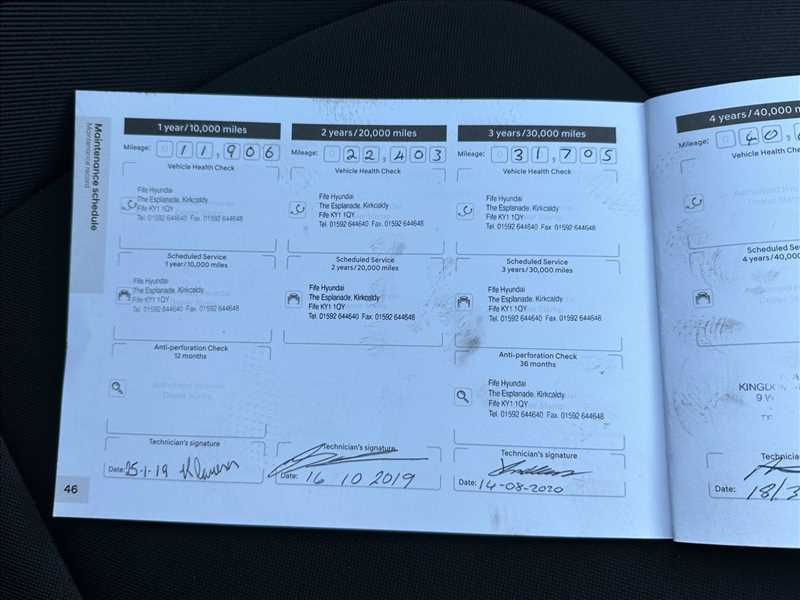 Maintenance schedule
Maintenance record
1 year/10,000 miles
Mileage: 0 1 1, 9 0 6
Vehicle Health Check
Fife Hyundai
The Esplanade, Kirkcaldy
Fife KY1 1QY
Tel. 01592 644640 Fax. 01592 644648
Scheduled Service
1 year/10,000 miles
Fife Hyundai
The Esplanade, Kirkcaldy
Fife KY1 1QY
Tel. 01592 644640 Fax. 01592 644648
Anti-perforation Check
12 months
Technician's signature
Date: 25-1-19
46
2 years/20,000 miles
Mileage: 0 2 2, 4 0 3
Vehicle Health Check
Fife Hyundai
The Esplanade, Kirkcaldy
Fife KY1 1QY
Tel. 01592 644640 Fax. 01592 644648
Scheduled Service
2 years/20,000 miles
Fife Hyundai
The Esplanade, Kirkcaldy
Fife KY1 1QY
Tel. 01592 644640 Fax. 01592 644648
Technician's signature
Date: 16 10 2019
3 years/30,000 miles
Mileage: 0 3 1, 7 0 5
Vehicle Health Check
Fife Hyundai
The Esplanade, Kirkcaldy
Fife KY1 1QY
Tel. 01592 644640 Fax. 01592 644648
Scheduled Service
3 years/30,000 miles
Fife Hyundai
The Esplanade, Kirkcaldy
Fife KY1 1QY
Tel. 01592 644640 Fax. 01592 644648
Anti-perforation Check
36 months
Fife Hyundai
The Esplanade, Kirkcaldy
Fife KY1 1QY
Tel. 01592 644640 Fax. 01592 644648
Technician's signature
Date: 14-08-2020
4 years/40,000 m
Mileage: 0 4 0,
Vehicle Health Che
Scheduled Se
4 years/40,000
KINGDO
9 W
Technicia
Date: 18/3